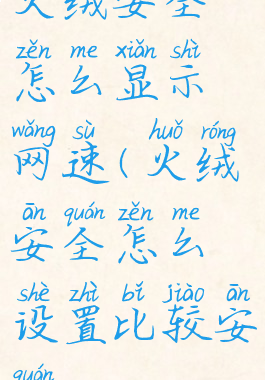 火绒安全
zěn me xiǎn shì
怎么显示
wǎng sù huǒ róng
网速(火绒
ān quán zěn me
安全怎么
shè zhì bǐ jiào ān
设置比较安
quán